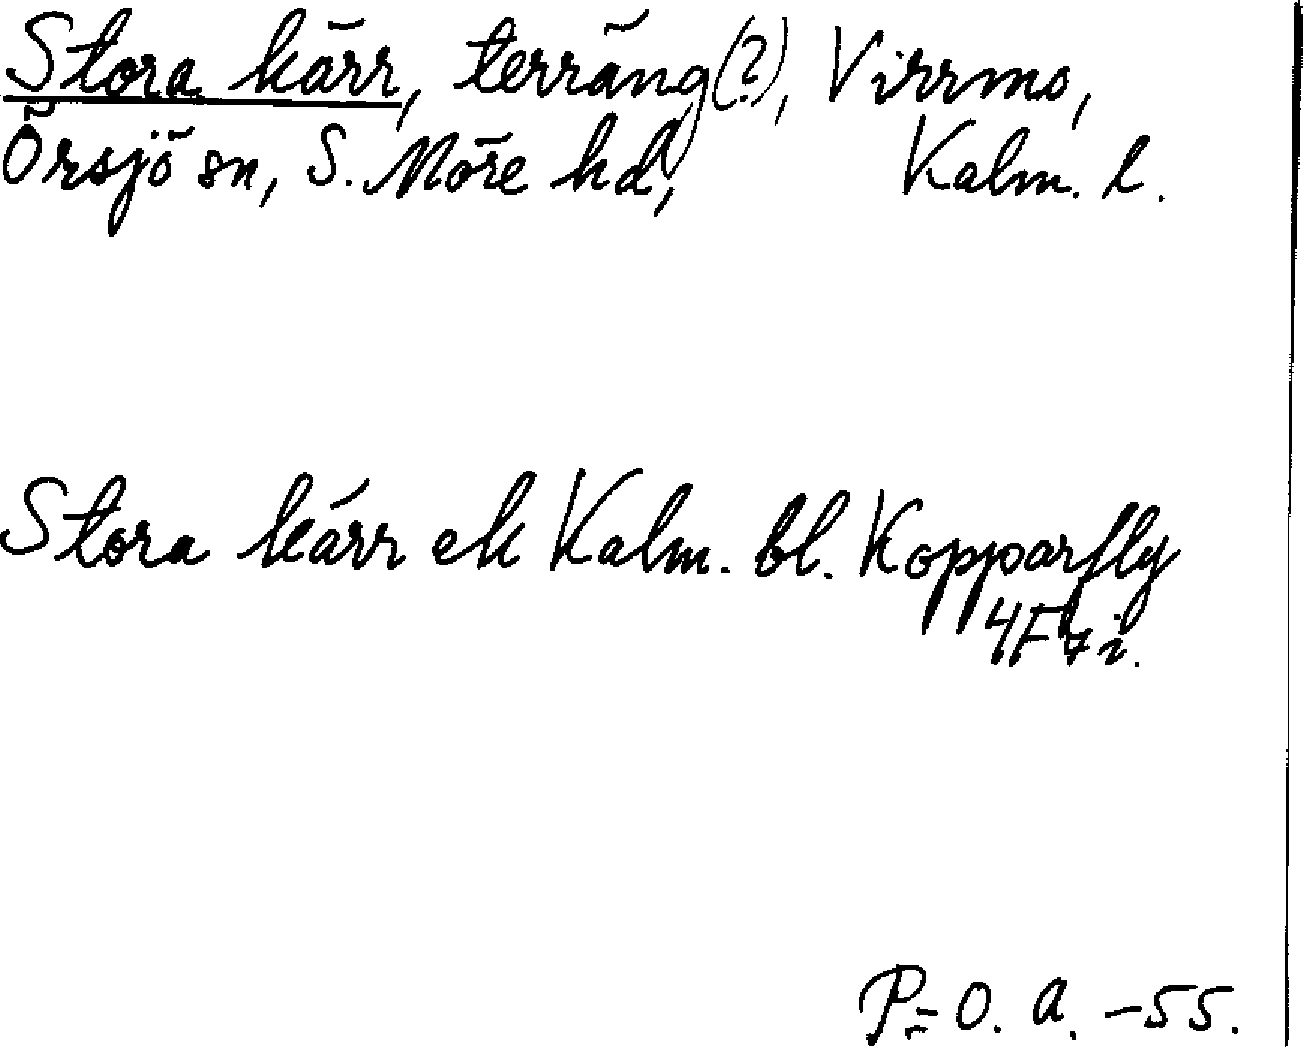 Stora kärr, terräng(?), Virrmo,
Örsjö sn, S. Möre hd, Kalm. l.
Stora kärr ek Kalm. bl. Kopparfly
4F7i.
P-O. A. -55.